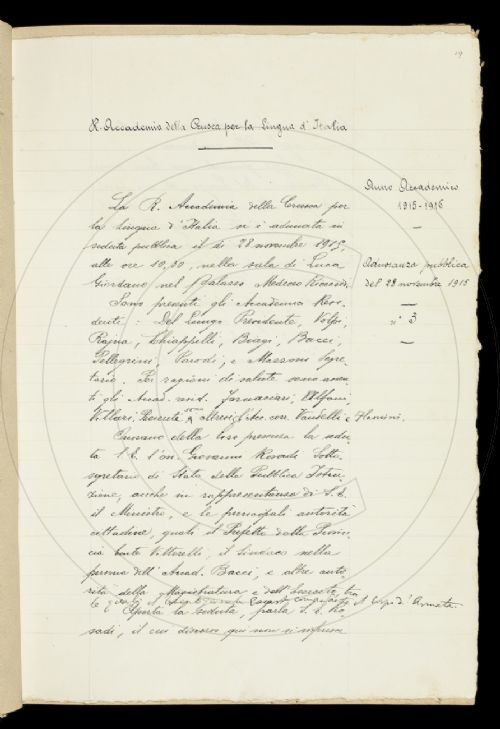 19
R. Accademia della Crusca per la Lingua d'Italia
Anno Accademico
1915-1916
La R. Accademia della Crusca per
la Lingua d'Italia si è adunata in
seduta pubblica il dì 28 novembre 1915,
alle ore 10,30, nella sala di Luca
Giordano, nel Palazzo Mediceo Riccardi.
Adunanza pubblica
del 28 novembre 1915
n° 3
Sono presenti gli Accademici Resi-
denti: Del Lungo Presidente, Volpi,
Rajna, Chiappelli, Biagi, Bacci,
Pellegrini, Parodi, e Mazzoni Segre-
tario. Per ragioni di salute sono assen-
ti gli Accad. resid. Tortoli,
Villari, altresì corr. Vandelli e Flamini.
Onorano della loro presenza la sedu-
ta S. E. l'on. Giovanni Rosadi Sotto-
segretario di Stato della Pubblica Istru-
zione, anche in rappresentanza di S. E.
il Ministro, e le principali autorità
cittadine, quali il Prefetto della Provin-
cia conte Vittorelli, il Sindaco nella
persona dell'Accad. Bacci, e altre auto-
rità della Magistratura e dell'Esercito, tra
le quali il il Corpo d'Armata.
Aperta la seduta, parla S. E. Ro-
sadi, il cui discorso qui non si imprime